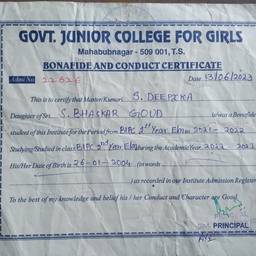 GOVT. JUNIOR COLLEGE FOR GIRLS
Mahabubnagar - 509 001, T.S.
BONAFIDE AND CONDUCT CERTIFICATE
Admi No. Date 13/06/2023
This is to certify that Master/Kumari S. DEEPIKA
Daughter of Sri. S. BHASKAR GOUD is/was a Bonafide
student of this Institute for the Period from BIPC 2nd Year E/m 2021 - 2022
Studying/Studied in class BIPC 2nd Year E/m during the Academic Year 2022 2023
His/Her Date of Birth is 26-01-2004 (in words
) as recorded in our Institute Admission Register
To the best of my knowledge and belief his / her Conduct and Character are Good
PRINCIPAL